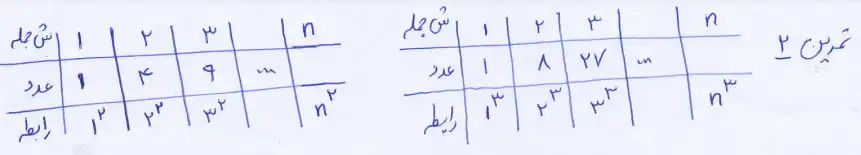 تمرین ۲
ش جمله | ۱ | ۲ | ۳ | | n
عدد | ۱ | ۸ | ۲۷ | ... |
رابطه | ۱^۳ | ۲^۳ | ۳^۳ | | n^۳
ش جمله | ۱ | ۲ | ۳ | | n
عدد | ۱ | ۴ | ۹ | ... |
رابطه | ۱^۲ | ۲^۲ | ۳^۲ | | n^۲